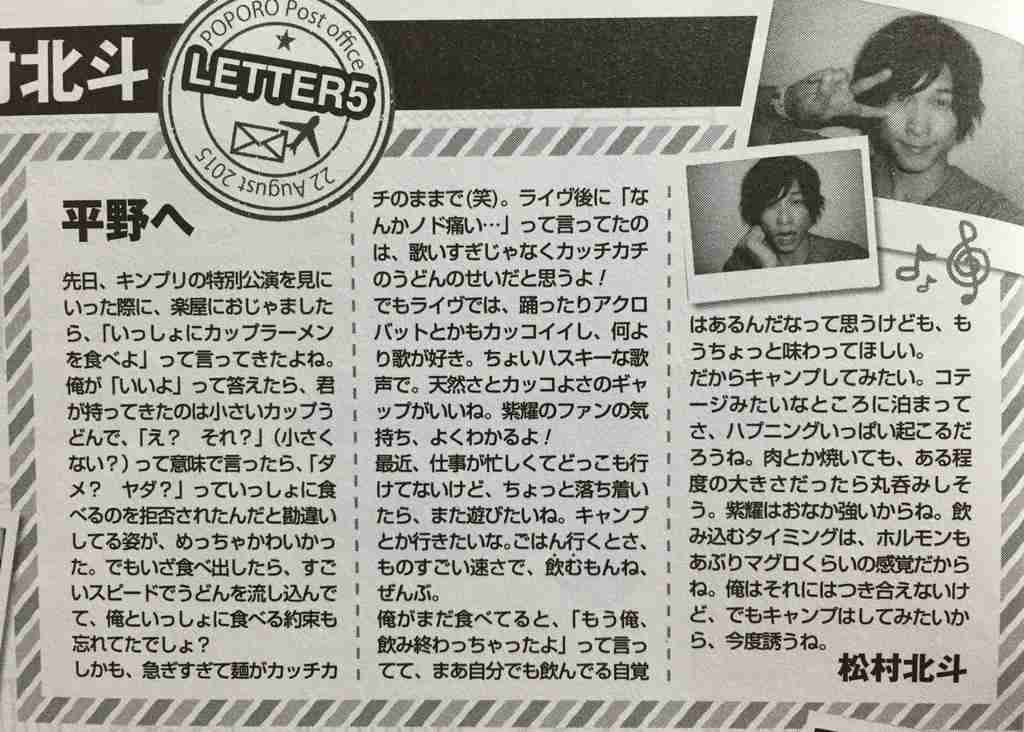 村北斗
POPORO Post office
LETTER5
22 August 2015
平野へ
先日、キンプリの特別公演を見に
いった際に、楽屋におじゃました
ら、「いっしょにカップラーメン
を食べよ」って言ってきたよね。
俺が「いいよ」って答えたら、君
が持ってきたのは小さいカップう
どんで、「え？　それ？」（小さく
ない？）って意味で言ったら、「ダ
メ？　ヤダ？」っていっしょに食
べるのを拒否されたんだと勘違い
してる姿が、めっちゃかわいかっ
た。でもいざ食べ出したら、すご
いスピードでうどんを流し込んで
て、俺といっしょに食べる約束も
忘れてたでしょ？
しかも、急ぎすぎて麺がカッチカ
チのままで(笑)。ライヴ後に「な
んかノド痛い…」って言ってたの
は、歌いすぎじゃなくカッチカチ
のうどんのせいだと思うよ！
でもライヴでは、踊ったりアクロ
バットとかもカッコイイし、何よ
り歌が好き。ちょいハスキーな歌
声で。天然さとカッコよさのギャ
ップがいいね。紫耀のファンの気
持ち、よくわかるよ！
最近、仕事が忙しくてどっこも行
けてないけど、ちょっと落ち着い
たら、また遊びたいね。キャンプ
とか行きたいな。ごはん行くとさ、
ものすごい速さで、飲むもんね、
ぜんぶ。
俺がまだ食べてると、「もう俺、
飲み終わっちゃったよ」って言っ
てて、まあ自分でも飲んでる自覚
はあるんだなって思うけども、も
うちょっと味わってほしい。
だからキャンプしてみたい。コテ
ージみたいなところに泊まって
さ、ハプニングいっぱい起こるだ
ろうね。肉とか焼いても、ある程
度の大きさだったら丸呑みしそ
う。紫耀はおなか強いからね。飲
み込むタイミングは、ホルモンも
あぶりマグロくらいの感覚だから
ね。俺はそれにはつき合えないけ
ど、でもキャンプはしてみたいか
ら、今度誘うね。
松村北斗